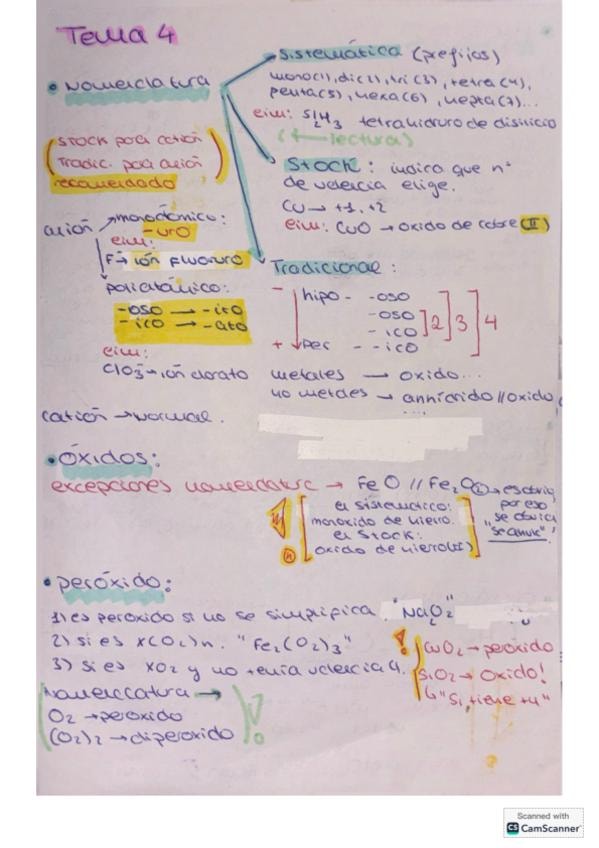 Tema 4
• Nomenclatura
Sistemática (prefijos)
mono(1), di(2), tri(3), tetra(4),
penta(5), hexa(6), hepta(7)...
ejm: Si2H3 tetrahidruro de disilicio
(← lectura)
(Stock para catión
Tradic. para anión)
recomendado
Stock: indica que nº
de valencia elige.
Cu → +1, +2
ejm: CuO → oxido de cobre (II)
anión → monoatómico:
-uro
ejm:
F- → ión fluoruro
poliatómico:
-oso → -ito
-ico → -ato
ejm:
ClO3- → ión clorato
catión → normal.
Tradicional:
- hipo - -oso
-oso
-ico ]2 ]3 ]4
+ per - -ico
metales → oxido...
no metales → anhídrido // oxido
...
• Óxidos:
excepciones nomenclatura → FeO // Fe2O
en sistemático:
monoxido de hierro.
en Stock:
oxido de hierro
por eso
"se obvia
• peróxido:
1) es peroxido si no se simplifica. "Na2O2"
2) si es x(O2)n. "Fe2(O2)3"
3) si es xO2 y no tenia valencia 4.
CuO2 → peróxido
SiO2 → Oxido!
↳ "Si, tiene +4"
Nomenclatura →
O2 → peroxido
(O2)2 → diperoxido
Scanned with
CS CamScanner